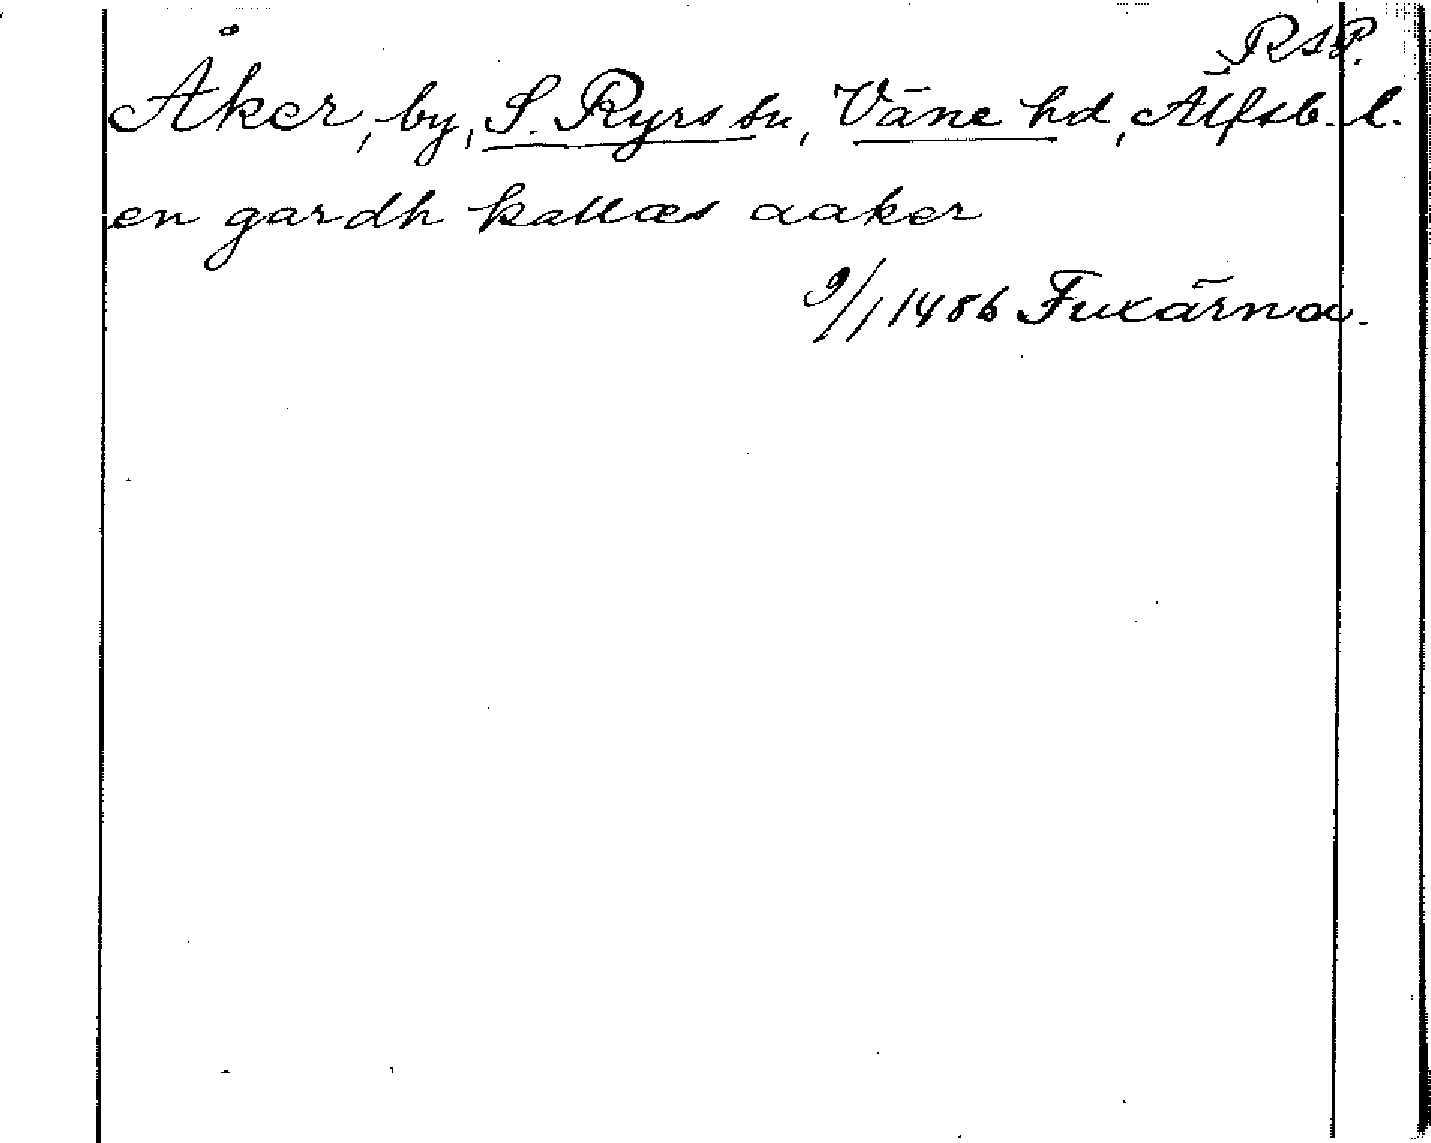 RAP.
Åker, by, S. Ryrs sn, Väne hd, Älfsb. l.
en gardh kallæs aaker
9/1 1486 Fuxärna.